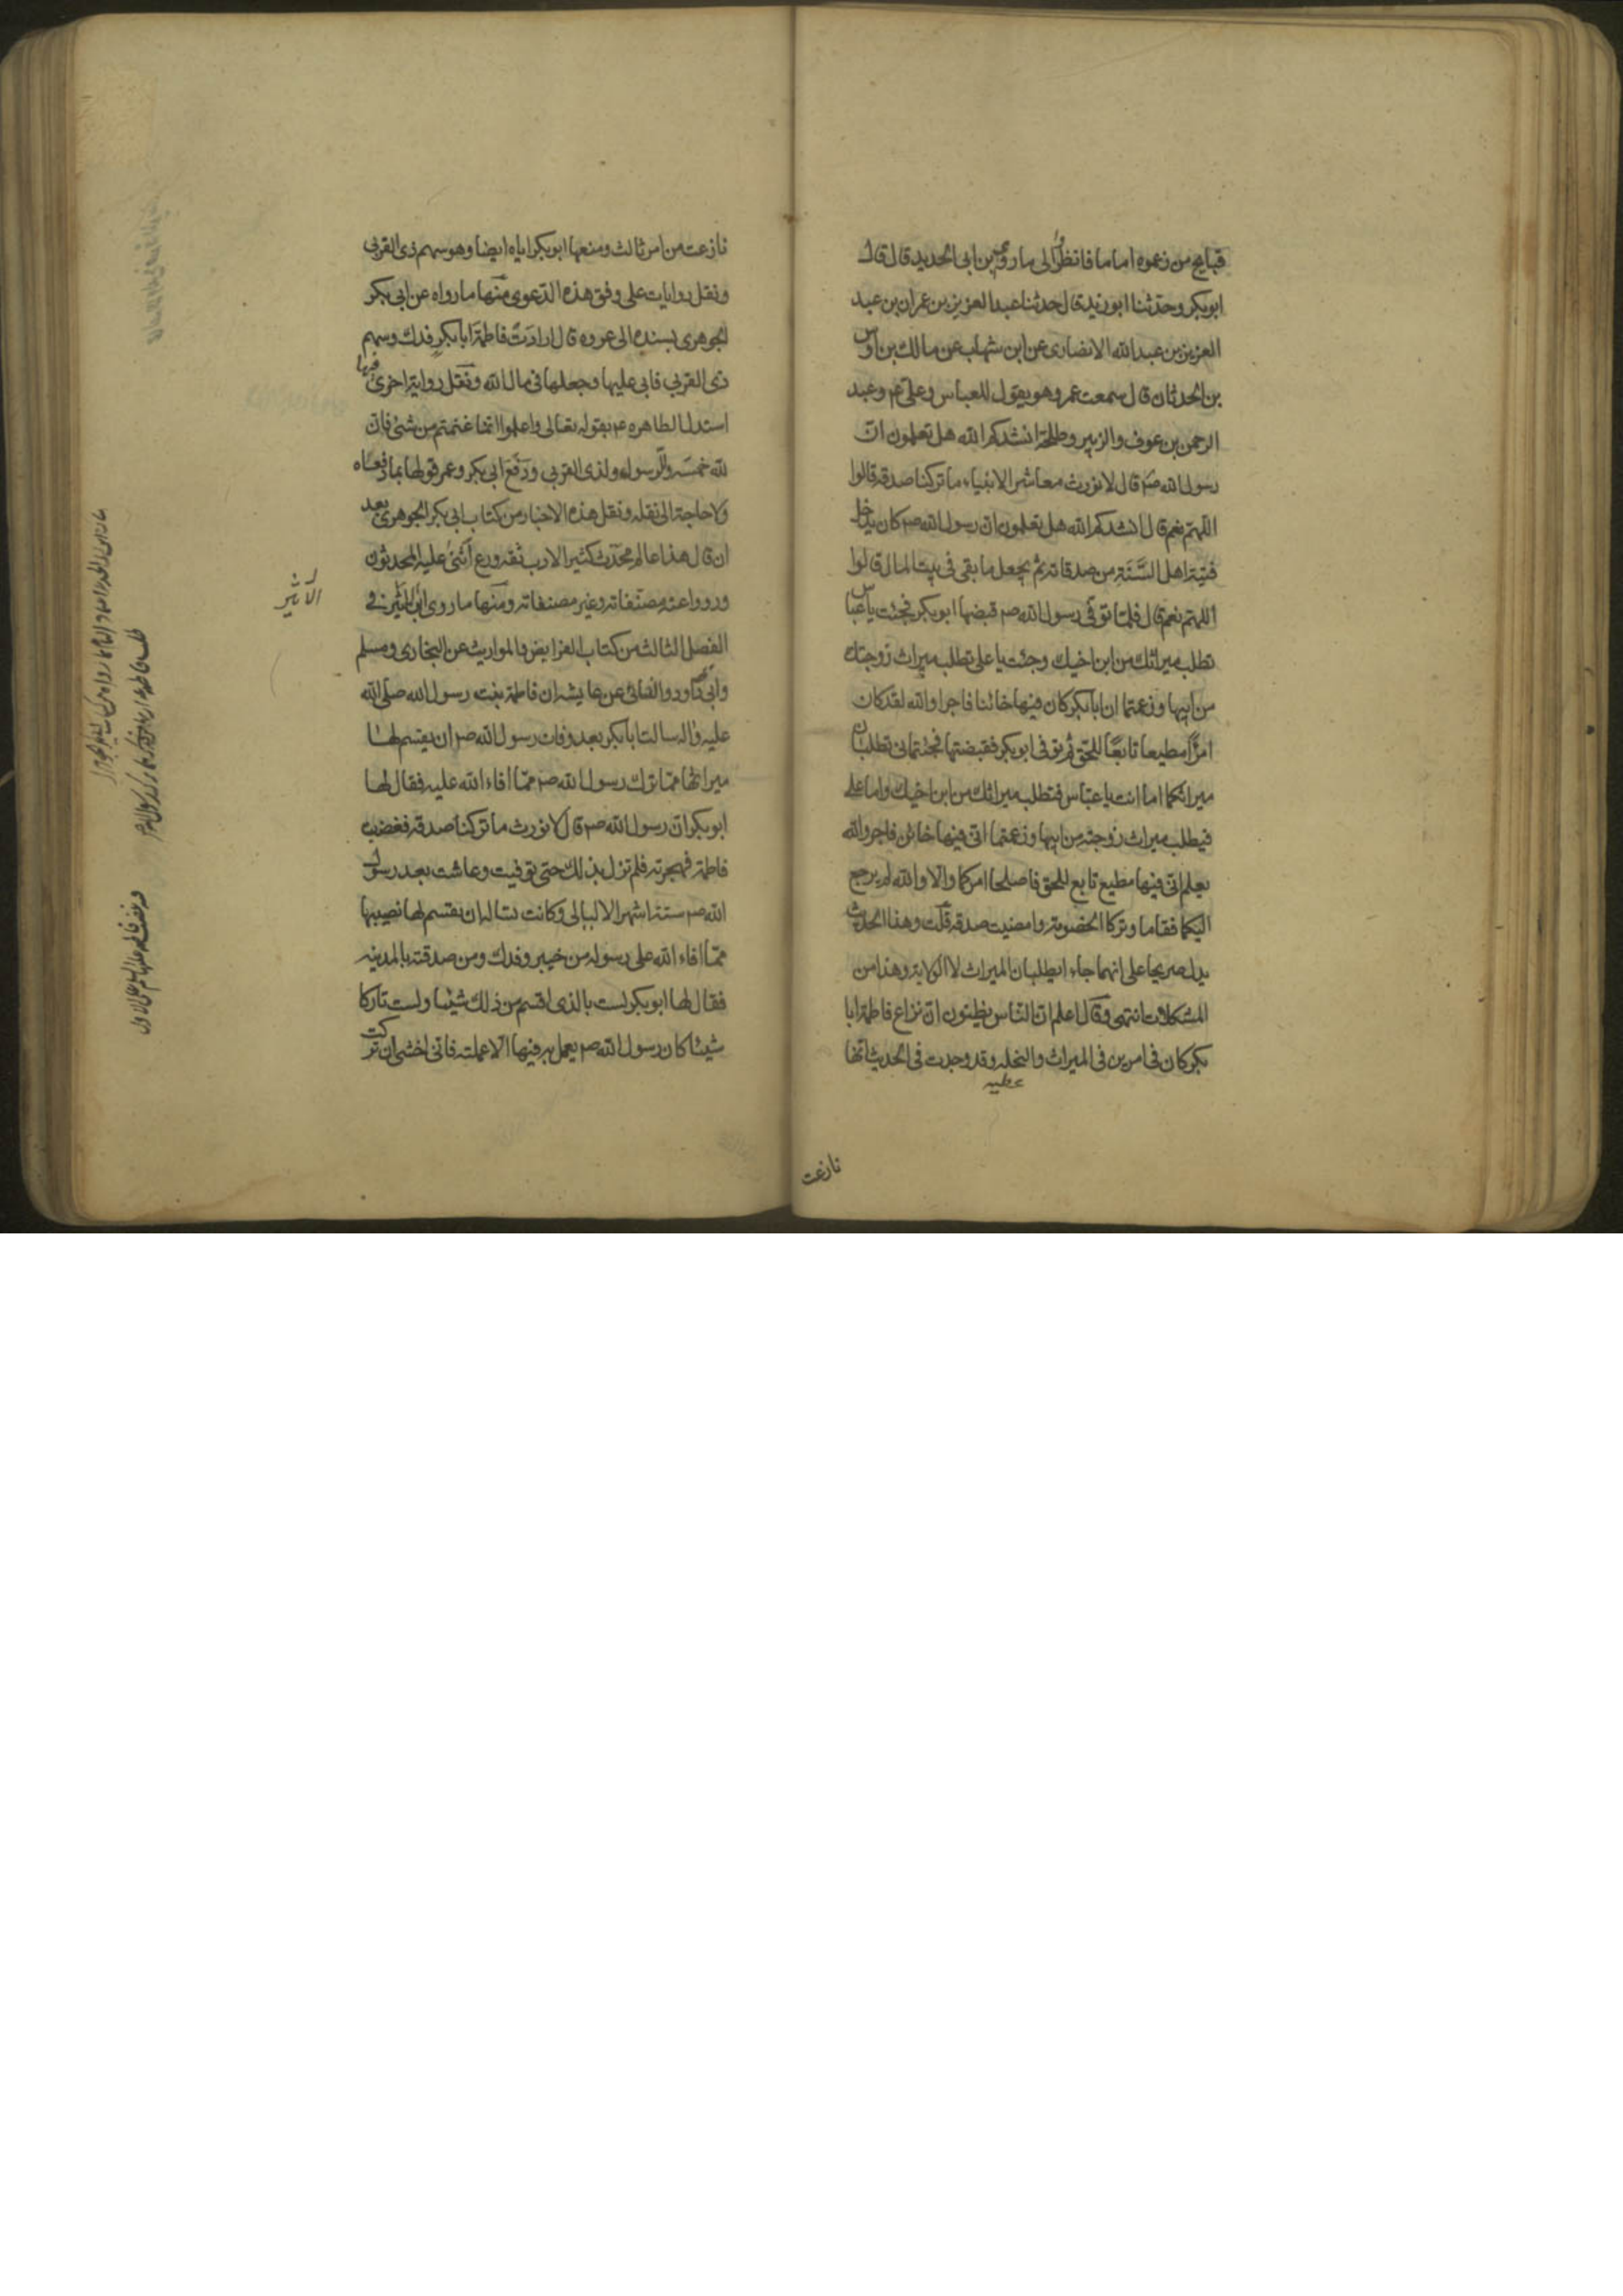 قبايح من زعموه اماما فانظر الى ما روى بن ابى الحديد قال قال
ابوبكر وحدثنا ابوزيد قال حدثنا عبد العزيز بن عمران بن عبد
العزيز بن عبد الله الانصارى عن ابن شهاب عن مالك بن اوس
بن الحدثان قال سمعت عمر وهو يقول للعباس وعلى ع وعبد
الرحمن بن عوف والزبير وطلحة انشدكم الله هل تعلمون ان
رسول الله ص قال لا نورث معاشر الانبياء ما تركنا صدقة قالوا
اللهم نعم قال انشدكم الله هل تعلمون ان رسول الله ص كان يدخل
فيئة اهل السنة من صدقاته ثم يجعل ما بقى فى بيت المال قالوا
اللهم نعم قال فلما توفى رسول الله ص قبضها ابوبكر فجئت يا عباس
تطلب ميراثك من ابن اخيك وجئت يا على تطلب ميراث زوجتك
من ابيها وزعمتما ان ابابكر كان فيها خائنا فاجرا والله لقد كان
امرأ مطيعا تابعا للحق ثم توفى ابوبكر فقبضتها فجئتمانى تطلبان
ميراثكما اما انت يا عباس فتطلب ميراثك من ابن اخيك واما على
فيطلب ميراث زوجته من ابيها وزعمتما انى فيها خائن فاجر والله
يعلم انى فيها مطيع تابع للحق فاصلحا امركما والا والله لم يرجع
اليكما فقاما وتركا الخصومة وامضيت صدقة قلت وهذا الحديث
يدل صريحا على انهما جاءا يطلبان الميراث لا الولاية وهذا من
المشكلات انتهى وقال اعلم ان الناس يظنون ان نزاع فاطمة ابا
بكر كان فى امرين فى الميراث والنحله وقد وجدت فى الحديث انها
عطيه
نازعت
نازعت من امر ثالث ومنعها ابوبكر اياه ايضا وهو سهم ذى القربى
ونقل روايات على وفق هذه الدعوى منها ما رواه عن ابى بكر
الجوهرى بسنده الى عروه قال ارادت فاطمة ابابكر فدك وسهم
ذى القربى فابى عليها وجعلها فى مال الله ونقل رواية اخرى فيها
استدل الطاهره ع بقوله تعالى واعلموا انما غنمتم من شئ فان
لله خمسه وللرسول ولذى القربى ودفع ابى بكر وعمر قولها بما دفعاه
ولا حاجة الى نقله ونقل هذه الاخبار من كتاب ابى بكر الجوهرى بعد
ان قال هذا عالم محدث كثير الادب ثقه ورع اثنى عليه المحدثون
ورووا عنه مصنفاته وغير مصنفاته ومنها ما روى ابن الاثير فى
الاثير
الفصل الثالث من كتاب الفرايض والمواريث عن البخارى ومسلم
وابى داود والنسائى عن عايشه ان فاطمة بنت رسول الله صلى الله
عليه واله سالت ابابكر بعد وفات رسول الله ص ان يقسم لها
ميراثها مما ترك رسول الله ص مما افاء الله عليه فقال لها
ابوبكر ان رسول الله ص قال لا نورث ما تركنا صدقة فغضبت
فاطمة فهجرته فلم تزل بذلك حتى توفيت وعاشت بعد رسول
الله ص ستة اشهر الا ليالى وكانت تساله ان يقسم لها نصيبها
مما افاء الله على رسوله من خيبر وفدك ومن صدقته بالمدينه
فقال لها ابوبكر لست بالذى اقسم من ذلك شيئا ولست تاركا
شيئا كان رسول الله ص يعمل به فيها الا عملته فانى اخشى ان تركت